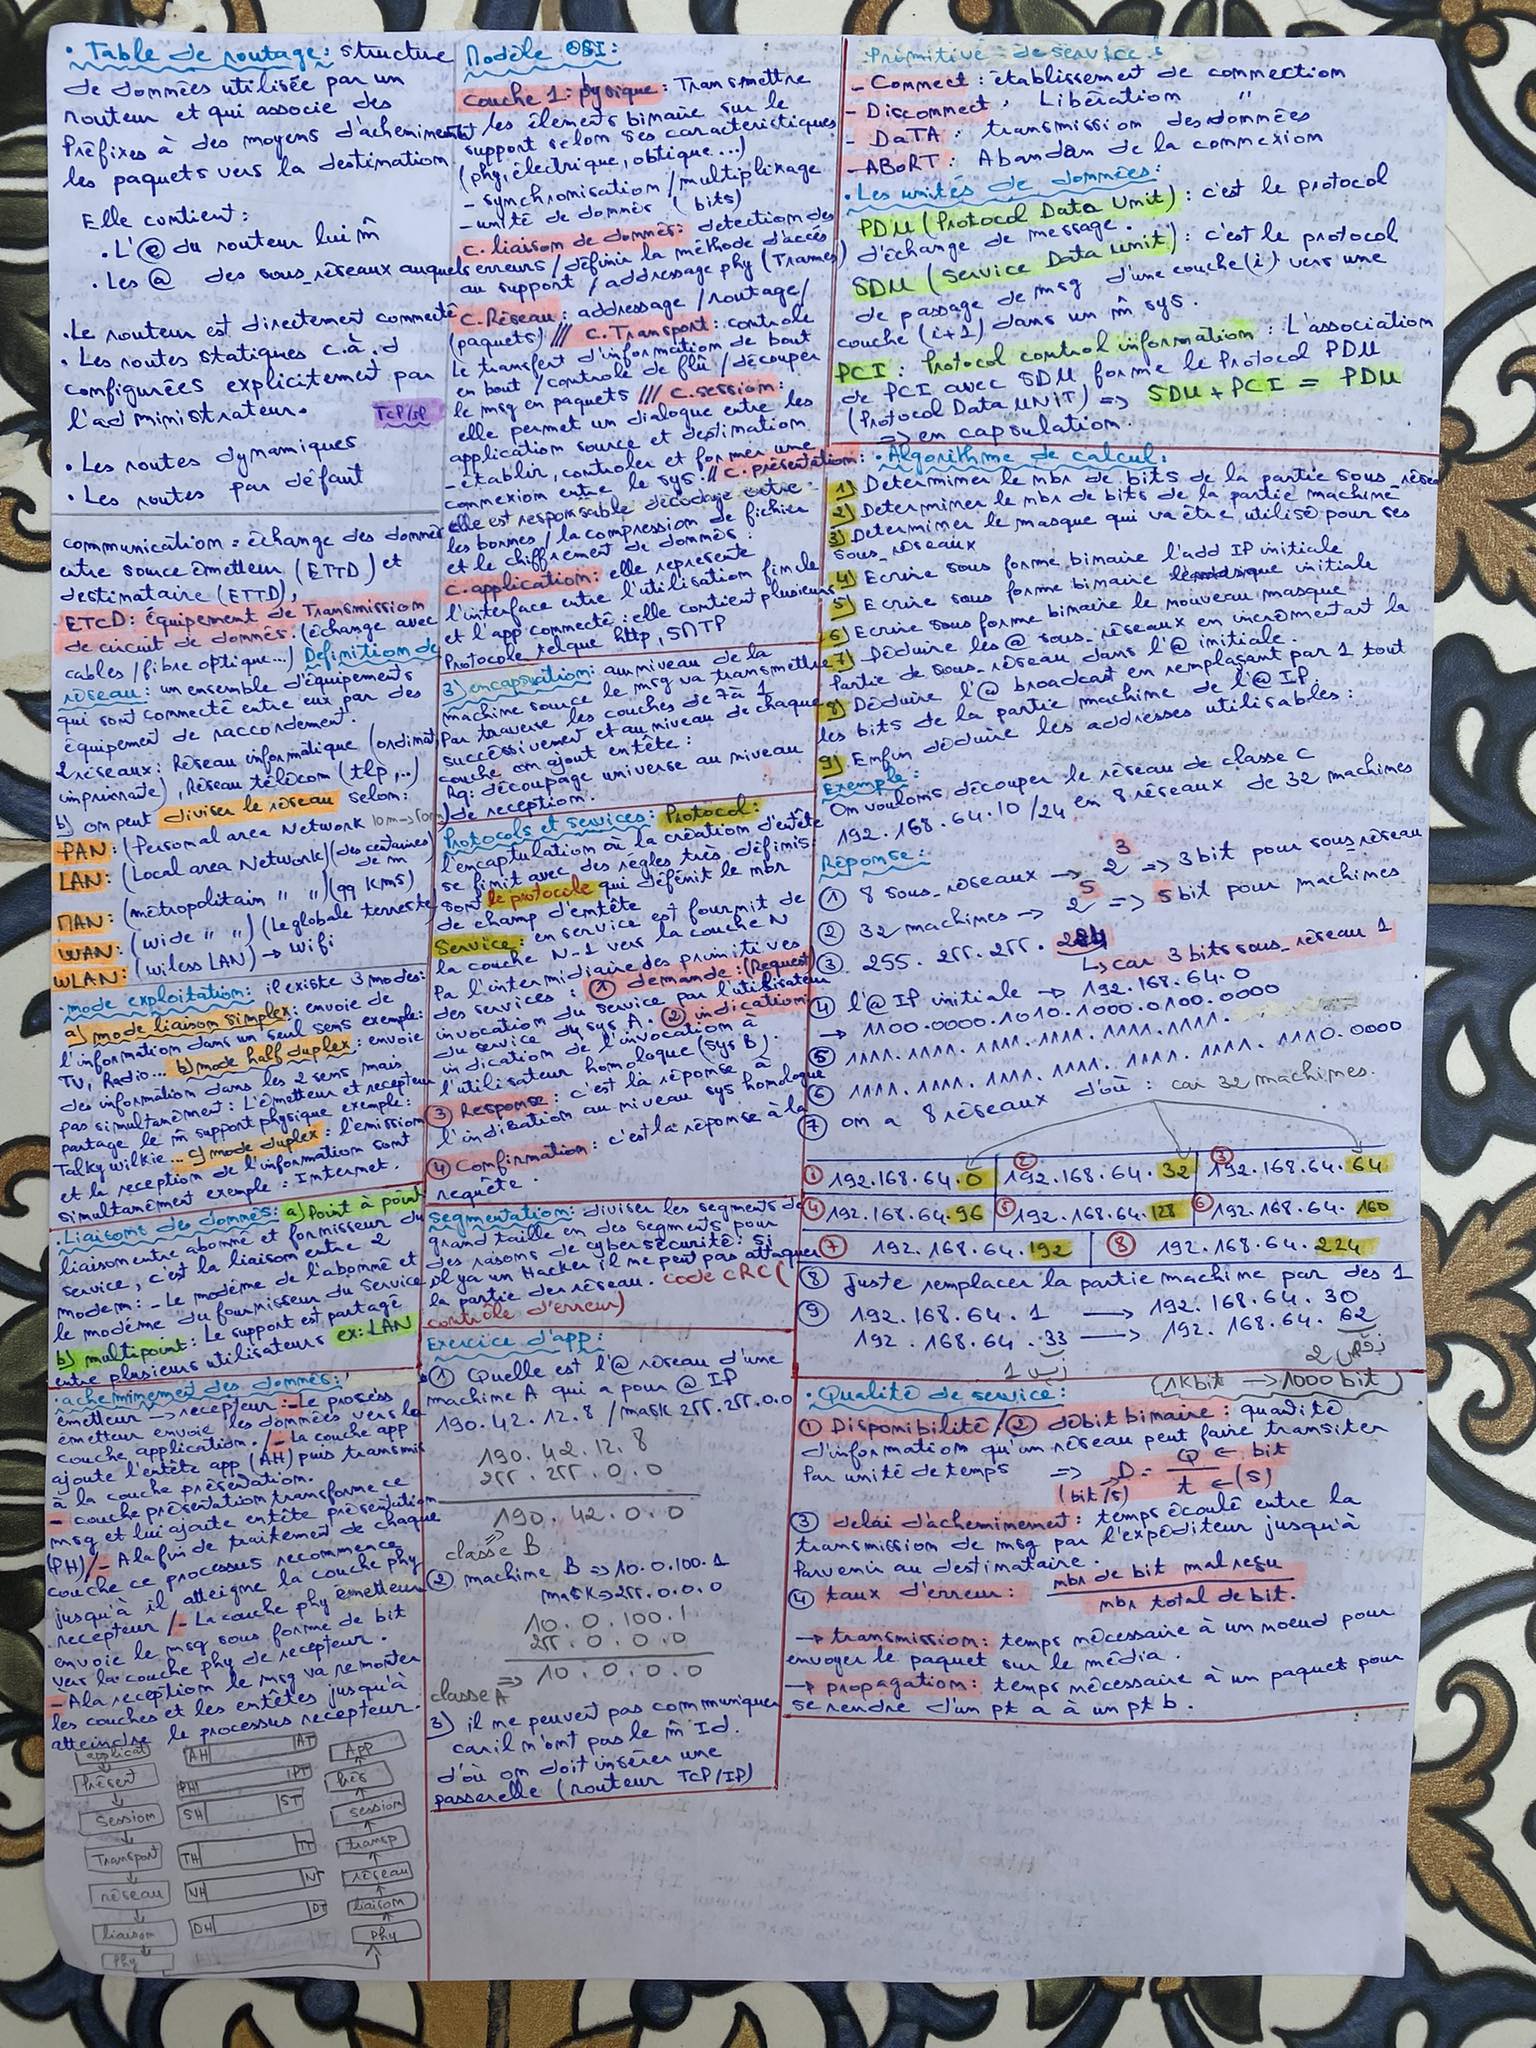 • Table de routage: structure
de données utilisée par un
routeur et qui associe des
Préfixes à des moyens d'acheminement
les paquets vers la destination
Elle contient:
• L'@ du routeur lui m̂
• Les @ des sous_réseaux auquels
• Le routeur est directement connecté
• Les routes statiques c.à.d
configurées explicitement par
l'administrateur.
TCP/IP
• Les routes dynamiques
• Les routes par défaut
communication: échange des donnés
entre source émetteur (ETTD) et
destinataire (ETTD),
ETCD: Équipement de Transmission
de circuit de donnés. (échange avec
cables / fibre optique...) Définition de
réseau: un ensemble d'équipements
qui sont connecté entre eux par des
équipement de raccordement.
2 réseaux: Réseau informatique (ordinat,
imprimante), Réseau télécom (tlp,..)
b) on peut diviser le réseau selon:
PAN: (Personal area Network
LAN: (Local area Network) (des centaines
de m
MAN: (métropolitain " ") (qq kms)
WAN: (wide " ") (Le globale terrestre
WLAN: (wiless LAN) → wifi
• mode exploitation: il existe 3 modes:
a) mode liaison simplex: envoie de
l'information dans un seul sens exemple:
TV, Radio... b) mode half duplex: envoie
des information dans les 2 sens mais
pas simultanément: L'émetteur et recepteur
partage le m̂ support physique exemple:
Talky wilkie... c) mode duplex: l'émission
et la reception de l'information sont
simultanément exemple: Internet.
• Liaisons des donnés: a) Point à point
liaison entre abonné et fornisseur du
service, c'est la liaison entre 2
modem: - Le modéme de l'abonné et
le modéme du fournisseur du service
b) multipoint: Le support est partagé
entre plusieurs utilisateurs ex: LAN
• acheminement des donnés:
émetteur → recepteur: - Le process
émetteur envoie les données vers la
couche application. /- La couche app
ajoute l'entête app (AH) puis transmis
à la couche présentation.
- couche présentation transforme ce
msg et lui ajoute entête présentation
(PH) /- A la fin de traitement de chaque
couche ce processus recommence
jusqu'à il atteigne la couche phy
recepteur /- La couche phy émetteur
envoie le msg sous forme de bit
vers la couche phy de recepteur.
- À la reception le msg va remonter
les couches et les entêtes jusqu'à
atteindre le processus recepteur.
applicat AH AT App
Présent PH PT Prés
Session SH ST session
Transport TH TT transp
réseau NH NT réseau
liaison DH DT liaison
Phy Phy
Modèle OSI:
couche 1: pysique: Transmettre
les élements binaire sur le
support selon ses caracteristiques
(phy, électrique, optique...)
- synchronisation / multiplixage
- unité de donnés (bits)
c. liaison de donnés: detection des
erreurs / définir la méthode d'accés
au support / addressage phy (Trames)
C. Réseau: addressage / routage /
(paquets) /// C. Transport: controle
Le transfert d'information de bout
en bout / controle de flû / découper
le msg en paquets /// C. session:
elle permet un dialogue entre les
application source et destination
- établir, controler et former une
connexion entre le sys. // C. présentation:
elle est responsable décodage entre
les bornes / la compression de fichier
et le chiffrement de donnés:
C. application: elle represente
l'interface entre l'utilisation finale
et l'app connecté: elle contient plusieurs
Protocole telque http, SMTP
3) encapsulation: au niveau de la
machine source le msg va transmettre
Par traverse les couches de 7 à 1
successivement et au niveau de chaque
couche on ajout entête:
Rq: découpage universe au niveau
de reception.
Protocols et services: Protocol:
l'encaptulation ou la création d'entête
se finit avec des regles très définis
sont le protocole qui défénit le nbr
de champ d'entête
Service: en service est fournit de
la couche N-1 vers la couche N
Pa l'intermidiaire des primitives
des services: ① demande: (Request)
invocation du service par l'utilisateur
du service du sys A. ② indication
indication de l'invocation à
l'utilisateur homologue (sys B).
③ Response: c'est la réponse à
l'indication au niveau sys homologue
④ Confirmation: c'est la réponse à la
requête.
Segmentation: diviser les segments de
grand taille en des segments pour
des raisons de cyber sécurité: si
il ya un Hacker il ne peut pas attaquer
la partie des réseau. code CRC (
contrôle d'erreur)
Exercice d'app:
① Quelle est l'@ réseau d'une
machine A qui a pour @ IP
190.42.12.8 / mask 255.255.0.0
190.42.12.8
255.255.0.0
190.42.0.0
classe B
② machine B => 10.0.100.1
mask => 255.0.0.0
10.0.100.1
255.0.0.0
=> 10.0.0.0
classe A
3) il ne peuvent pas communiquer
car il n'ont pas le m̂ Id.
d'où on doit insérer une
passerelle (routeur TCP/IP)
Primitive = de service:
- Connect: établissement de connection
- Disconnect, Libération "
- DATA: transmission des données
- ABORT: Abandan de la connexion
• Les unités de données:
PDU (Protocol Data Unit): c'est le protocol
d'échange de message.
SDU (Service Data Unit): c'est le protocol
de passage de msg d'une couche (i) vers une
couche (i+1) dans un m̂ sys.
PCI: Protocol control information: L'association
de PCI avec SDU forme le Protocol PDU
(Protocol Data UNIT) => SDU + PCI = PDU
=> en capsulation.
• Algorithme de calcul:
1) Determiner le nbr de bits de la partie sous_réseau
2) Determiner le nbr de bits de la partie machine
3) Determiner le masque qui va être utilisé pour ses
sous_réseaux
4) Ecrire sous forme binaire l'add IP initiale
5) Ecrire sous forme binaire le masque initiale
6) Ecrire sous forme binaire le nouveau masque
7) Déduire les @ sous_réseaux en incrémentant la
partie de sous_réseau dans l'@ initiale.
8) Déduire l'@ broadcast en remplaçant par 1 tout
les bits de la partie machine de l'@ IP.
9) Enfin déduire les addresses utilisables:
Exemple:
On voulons découper le réseau de classe C
192.168.64.10/24 en 8 réseaux de 32 machines
Réponse:
① 8 sous_réseaux → 2³ => 3bit pour sous_réseau
② 32 machines → 2⁵ => 5bit pour machines
③ 255.255.255.224
↳ car 3 bits sous_réseau 1
④ l'@ IP initiale → 192.168.64.0
→ 1100.0000.1010.1000.0100.0000
⑤ 1111.1111.1111.1111.1111.1111.
⑥ 1111.1111.1111.1111.1111.1111.1110.0000
⑦ on a 8 réseaux d'où: car 32 machines.
① 192.168.64.0 ② 192.168.64.32 ③ 192.168.64.64
④ 192.168.64.96 ⑤ 192.168.64.128 ⑥ 192.168.64.160
⑦ 192.168.64.192 ⑧ 192.168.64.224
⑧ Juste remplacer la partie machine par des 1
⑨ 192.168.64.1 → 192.168.64.30
192.168.64.33 → 192.168.64.62
نزيد 1 نقص 2
• Qualité de service: (1Kbit → 1000 bit)
① Disponibilité / ② débit binaire: quantité
d'information qu'un réseau peut faire transiter
Par unité de temps => D = Q ← bit
(bit/s) t ← (s)
③ délai d'acheminement: temps écoulé entre la
transmission de msg par l'expéditeur jusqu'à
Parvenir au destinataire.
④ taux d'erreur: nbr de bit mal reçu
nbr total de bit.
→ transmission: temps nécessaire à un noeud pour
envoyer le paquet sur le média.
→ propagation: temps nécessaire à un paquet pour
se rendre d'un pt a à un pt b.